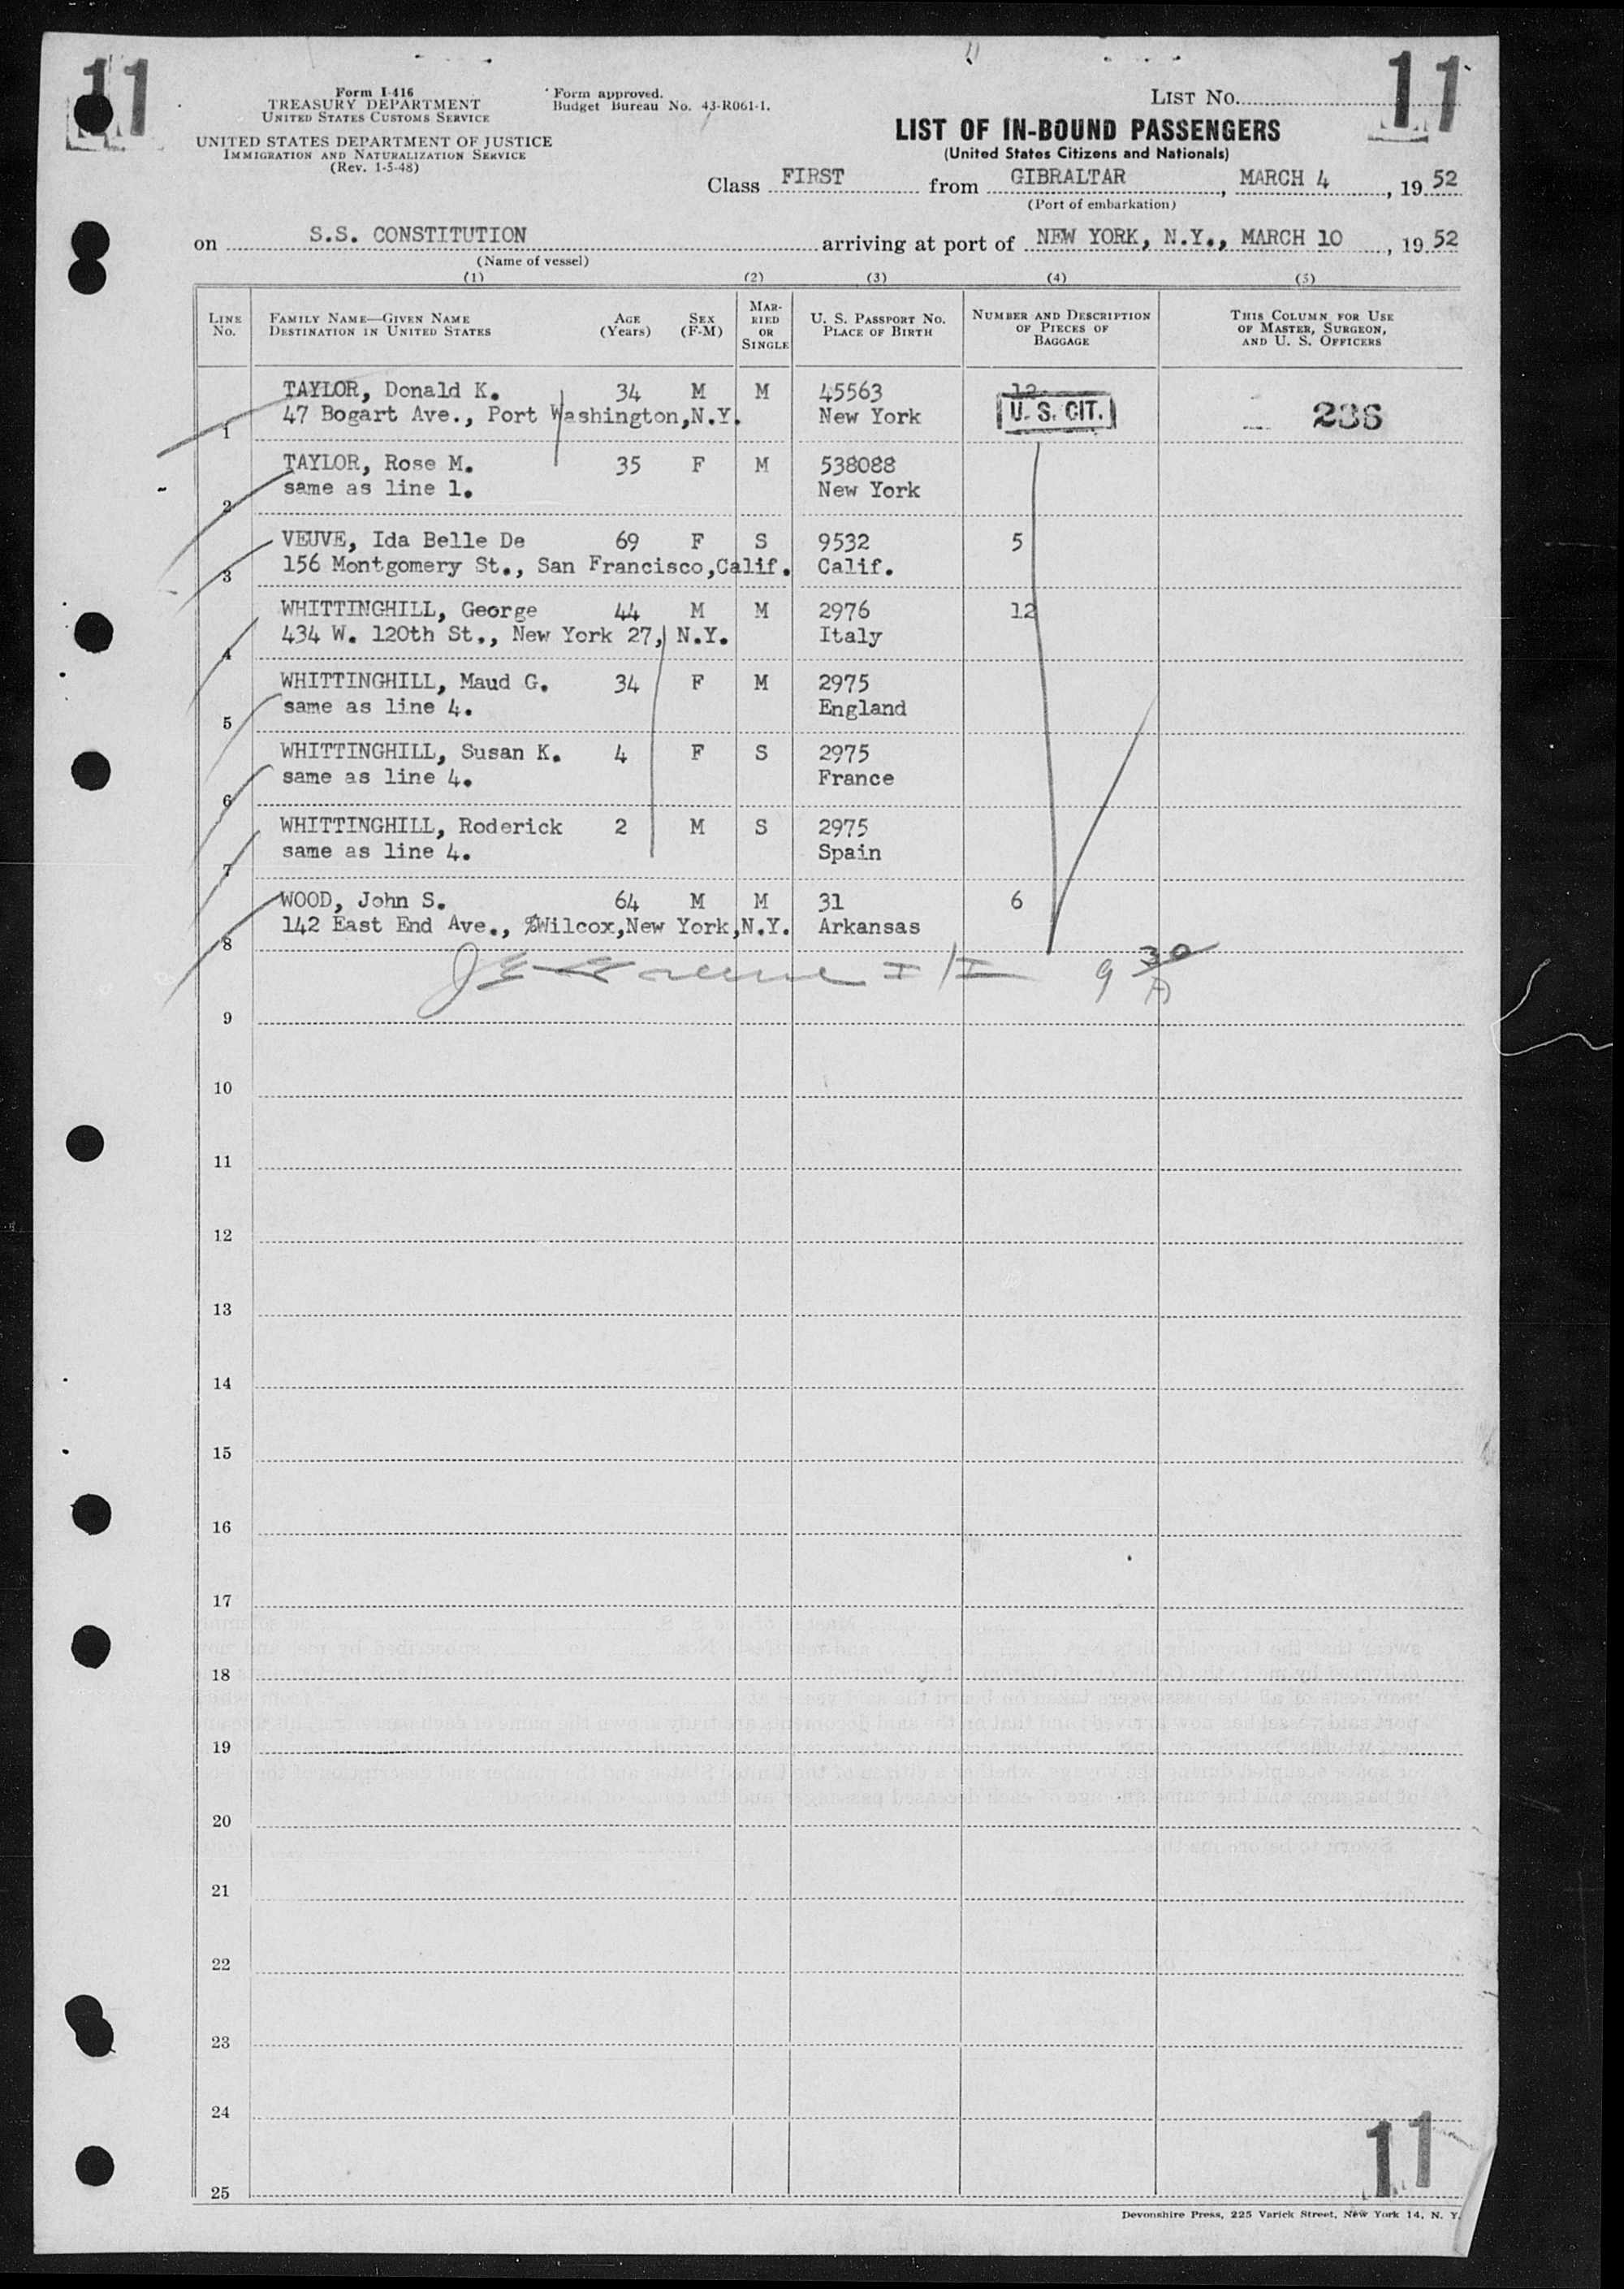 11
11
Form I-416
TREASURY DEPARTMENT
UNITED STATES CUSTOMS SERVICE
UNITED STATES DEPARTMENT OF JUSTICE
IMMIGRATION AND NATURALIZATION SERVICE
(Rev. 1-5-48)
Form approved.
Budget Bureau No. 43-R061-1.
LIST No.
LIST OF IN-BOUND PASSENGERS
(United States Citizens and Nationals)
Class FIRST from GIBRALTAR, MARCH 4, 19 52
(Port of embarkation)
on S.S. CONSTITUTION arriving at port of NEW YORK, N.Y., MARCH 10, 19 52
(Name of vessel)
(1) (2) (3) (4) (5)
LINE No. FAMILY NAME—GIVEN NAME DESTINATION IN UNITED STATES AGE (Years) SEX (F-M) MARRIED OR SINGLE U. S. PASSPORT No. PLACE OF BIRTH NUMBER AND DESCRIPTION OF PIECES OF BAGGAGE THIS COLUMN FOR USE OF MASTER, SURGEON, AND U. S. OFFICERS
TAYLOR, Donald K. 34 M M 45563 12
1 47 Bogart Ave., Port Washington,N.Y. New York U. S. CIT. 236
TAYLOR, Rose M. 35 F M 538088
2 same as line 1. New York
VEUVE, Ida Belle De 69 F S 9532 5
3 156 Montgomery St., San Francisco,Calif. Calif.
WHITTINGHILL, George 44 M M 2976 12
4 434 W. 120th St., New York 27, N.Y. Italy
WHITTINGHILL, Maud G. 34 F M 2975
5 same as line 4. England
WHITTINGHILL, Susan K. 4 F S 2975
6 same as line 4. France
WHITTINGHILL, Roderick 2 M S 2975
7 same as line 4. Spain
WOOD, John S. 64 M M 31 6
8 142 East End Ave., %Wilcox,New York,N.Y. Arkansas
9 30 A
9
10
11
12
13
14
15
16
17
18
19
20
21
22
23
24
25
11
Devonshire Press, 225 Varick Street, New York 14, N. Y.